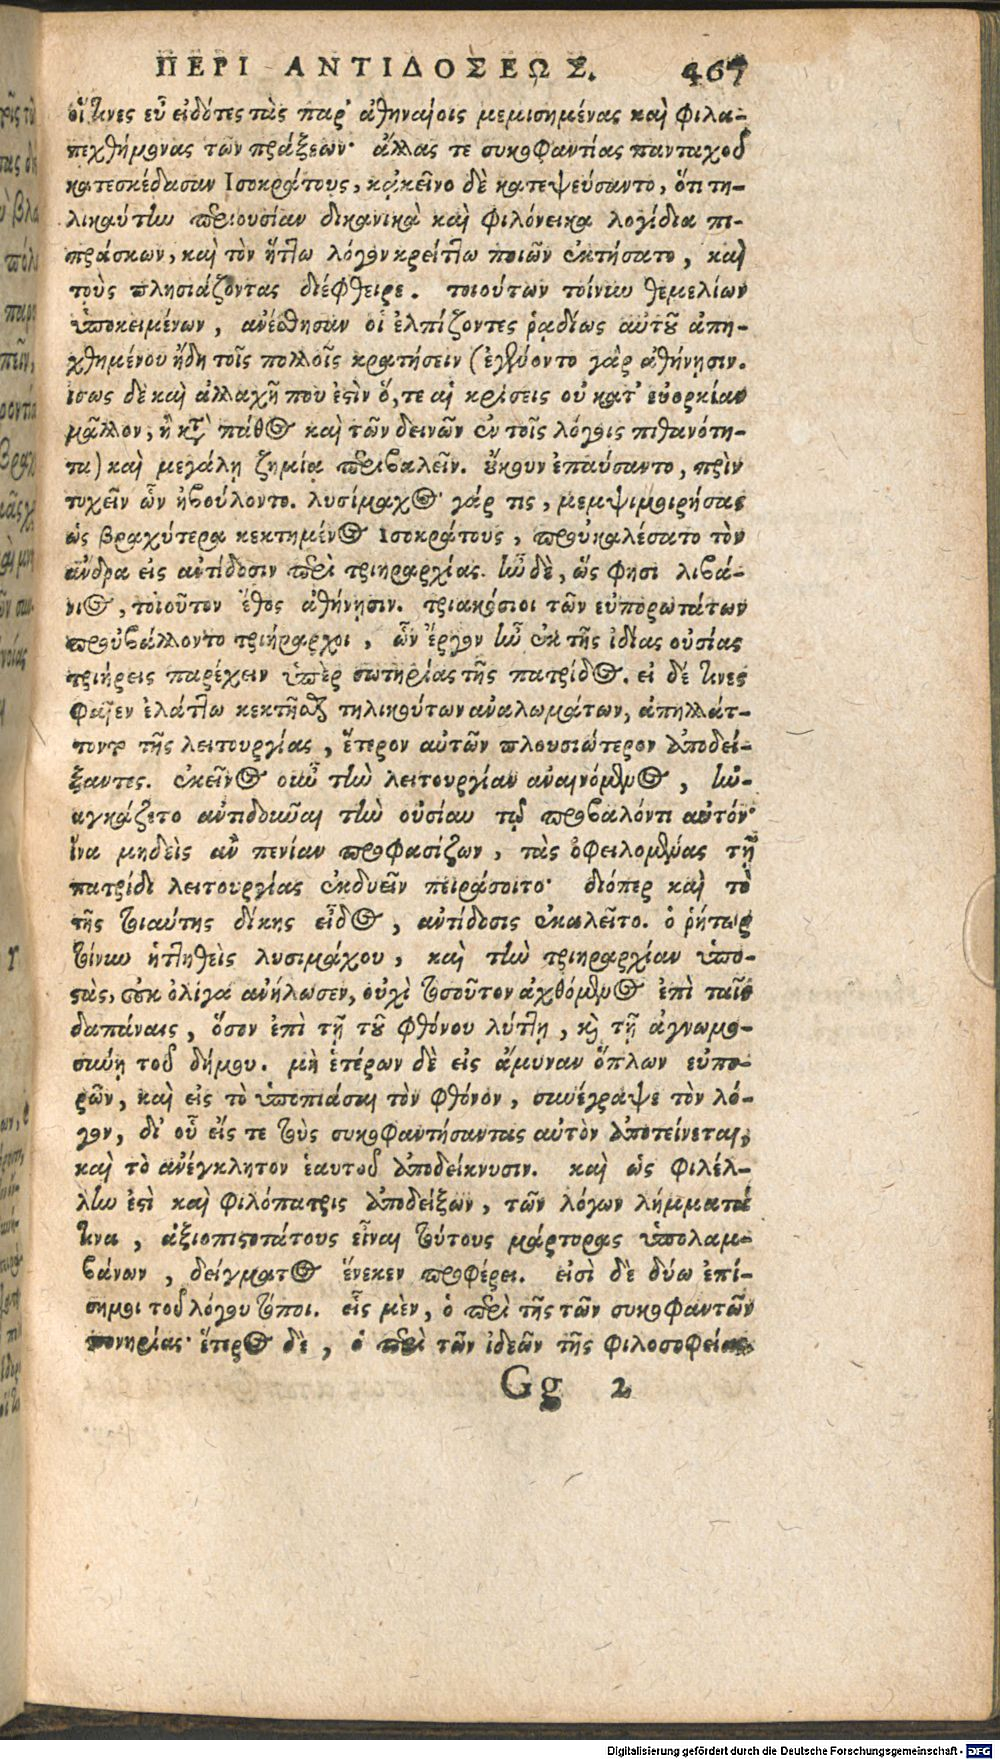 ΠΕΡΙ ΑΝΤΙΔΟΣΕΩΣ. 467
οἵτινες εὖ εἰδότες τὰς παρ' ἀθηναίοις μεμισημένας καὶ φιλα-
πεχθήμονας τῶν πράξεων· ἄλλας τε συκοφαντίας πανταχοῦ
κατεσκέδασαν Ισοκράτους, κἀκεῖνο δὲ κατεψεύσαντο, ὅτι τη-
λικαύτην περιουσίαν δικανικὰ καὶ φιλόνεικα λογίδια πι-
πράσκων, καὶ τὸν ἥττω λόγον κρείττω ποιῶν ἐκτήσατο, καὶ
τοὺς πλησιάζοντας διέφθειρε. τοιούτων τοίνυν θεμελίων
ὑποκειμένων, ἀνέστησαν οἱ ἐλπίζοντες ῥαδίως αὐτοῦ ἀπη-
χθημένου ἤδη τοῖς πολλοῖς κρατήσειν (ἐγένοντο γὰρ ἀθήνησιν.
ἴσως δὲ καὶ ἀλλαχῆ που ἐστὶν ὅ, τε αἱ κρίσεις οὐ κατ' εὐορκίαν
μᾶλλον, ἢ κατὰ πάθος καὶ τῶν δεινῶν ἐν τοῖς λόγοις πιθανότη-
τα) καὶ μεγάλῃ ζημίᾳ περιβαλεῖν. οὔκουν ἐπαύσαντο, πρὶν
τυχεῖν ὧν ἠβούλοντο. λυσίμαχος γάρ τις, μεμψιμοιρήσας
ὡς βραχύτερα κεκτημένος Ισοκράτους, προὐκαλέσατο τὸν
ἄνδρα εἰς ἀντίδοσιν περὶ τριηραρχίας. ἦν δὲ, ὥς φησι λιβά-
νιος, τοιοῦτον ἔθος ἀθήνησιν. τριακόσιοι τῶν εὐπορωτάτων
προὐβάλλοντο τριήραρχοι, ὧν ἔργον ἦν ἐκ τῆς ἰδίας οὐσίας
τριήρεις παρέχειν ὑπὲρ σωτηρίας τῆς πατρίδος. εἰ δέ τινες
φαῖεν ἐλάττω κεκτῆσθαι τηλικούτων ἀναλωμάτων, ἀπηλλάτ-
τοντο τῆς λειτουργίας, ἕτερον αὐτῶν πλουσιώτερον ἀποδεί-
ξαντες. ἐκεῖνος οὖν τὴν λειτουργίαν ἀναινόμενος, ἠν-
αγκάζετο ἀντιδοῦναι τὴν οὐσίαν τῷ προβαλόντι αὐτόν·
ἵνα μηδεὶς ἂν πενίαν προφασίζων, τὰς ὀφειλομένας τῇ
πατρίδι λειτουργίας ἐκδυεῖν πειράσοιτο· διόπερ καὶ τὸ
τῆς τοιαύτης δίκης εἶδος, ἀντίδοσις ἐκαλεῖτο. ὁ ῥήτωρ
τοίνυν ἡττηθεὶς λυσιμάχου, καὶ τὴν τριηραρχίαν ὑπο-
στὰς, οὐκ ὀλίγα ἀνήλωσεν, οὐχὶ τοσοῦτον ἀχθόμενος ἐπὶ ταῖς
δαπάναις, ὅσον ἐπὶ τῇ τοῦ φθόνου λύττῃ, καὶ τῇ ἀγνωμο-
σύνῃ τοῦ δήμου. μὴ ἑτέρων δὲ εἰς ἄμυναν ὅπλων εὐπο-
ρῶν, καὶ εἰς τὸ ὑποπιάσαι τὸν φθόνον, συνέγραψε τὸν λό-
γον, δι' οὗ εἴς τε τοὺς συκοφαντήσαντας αὐτὸν ἀποτείνεται,
καὶ τὸ ἀνέγκλητον ἑαυτοῦ ἀποδείκνυσιν. καὶ ὡς φιλέλ-
λην ἐστὶ καὶ φιλόπατρις ἀποδείξων, τῶν λόγων λήμματά
τινα, ἀξιοπιστοτάτους εἶναι τούτους μάρτυρας ὑπολαμ-
βάνων, δείγματος ἕνεκεν προφέρει. εἰσὶ δὲ δύω ἐπί-
σημοι τοῦ λόγου τόποι. εἷς μὲν, ὁ περὶ τῆς τῶν συκοφαντῶν
πονηρίας· ἕτερος δὲ, ὁ περὶ τῶν ἰδεῶν τῆς φιλοσοφείας
Gg 2
Digitalisierung gefördert durch die Deutsche Forschungsgemeinschaft - DFG